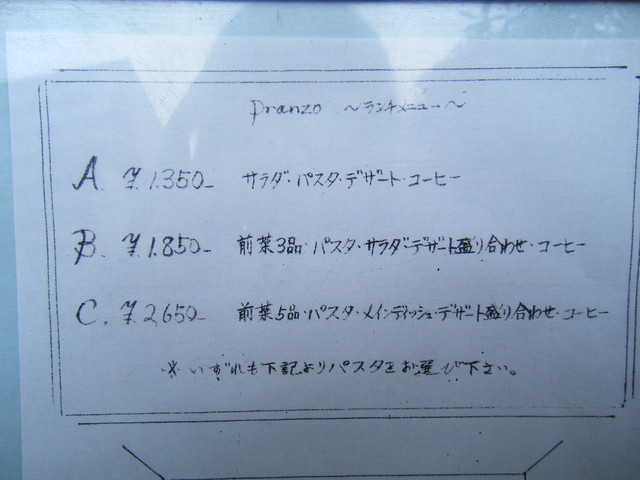 Pranzo 〜ランチメニュー〜
A. ¥1.350- サラダ・パスタ・デザート・コーヒー
B. ¥1.850- 前菜3品・パスタ・サラダ・デザート盛り合わせ・コーヒー
C. ¥2,650- 前菜5品・パスタ・メインディッシュ・デザート盛り合わせ・コーヒー
※いずれも下記よりパスタをお選び下さい。